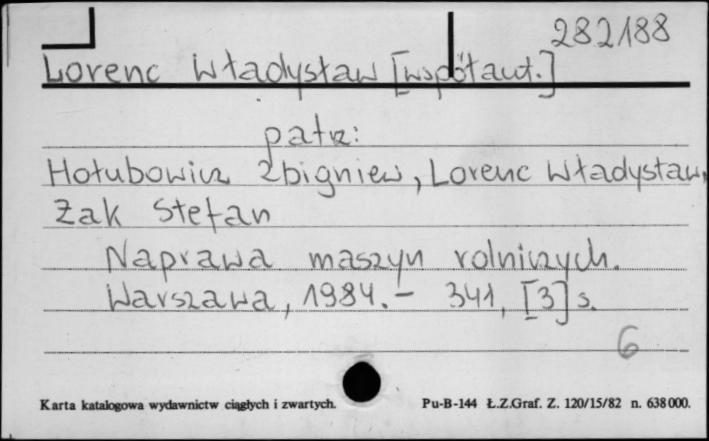 282188
Lorenc Władysław [współaut.]
patrz:
Hołubowicz Zbigniew, Lorenc Władysław,
Żak Stefan
Naprawa maszyn rolniczych.
Warszawa, 1984. – 341, [3] s.
6
Karta katalogowa wydawnictw ciągłych i zwartych. Pu-B-144 Ł.Z.Graf. Z. 120/15/82 n. 638000.